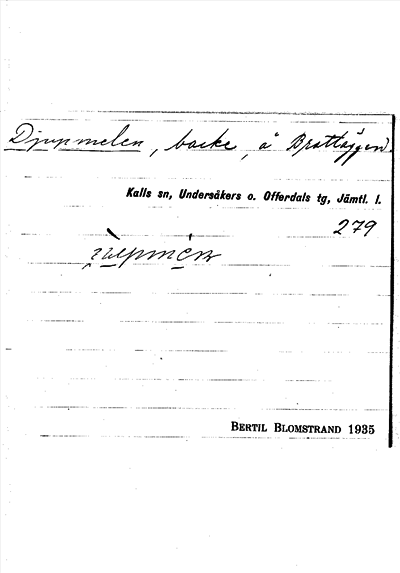 Djupmelen, backe, å Brattäggen
Kalls sn, Undersåkers o. Offerdals tg, Jämtl. l.
279
BERTIL BLOMSTRAND 1935